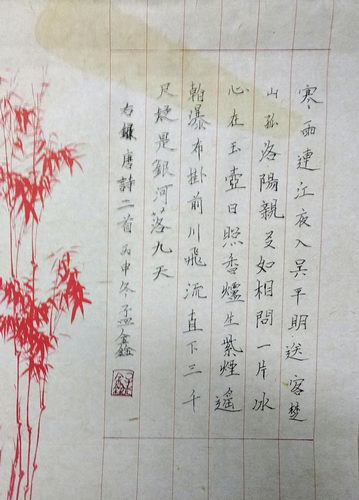 寒雨連江夜入吳平明送客楚
山孤洛陽親友如相問一片冰
心在玉壺日照香爐生紫煙遙
看瀑布掛前川飛流直下三千
尺疑是銀河落九天
右錄唐詩二首丙申冬